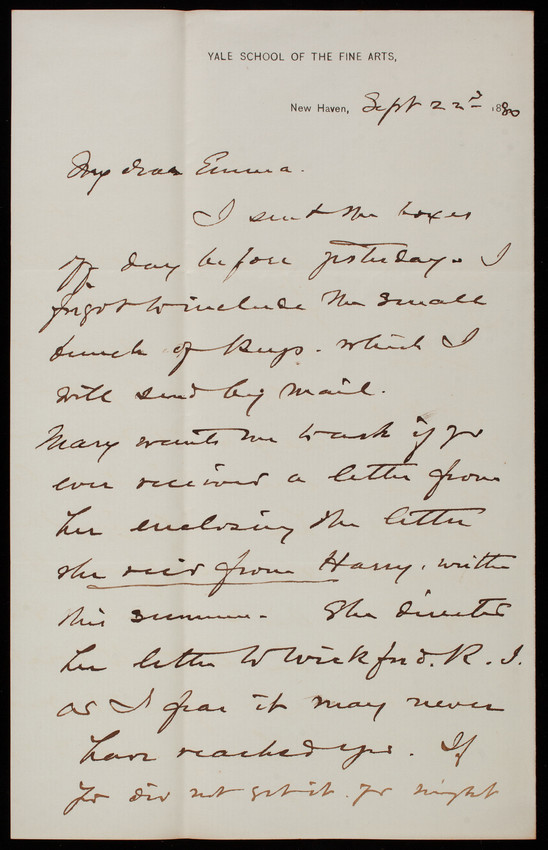 YALE SCHOOL OF THE FINE ARTS,
New Haven, Sept 22d 1880
My dear Emma.
I sent the boxes
off day before yesterday. I
forgot to include the small
bunch of keys. which I
will send by mail.
Mary wants me to ask if yo
ever received a letter from
her enclosing the letter
she recd from Harry, written
this summer. She directed
her letter to Wickford. R. I.
as I fear it may never
have reached you. If
yo did not get it. yo might